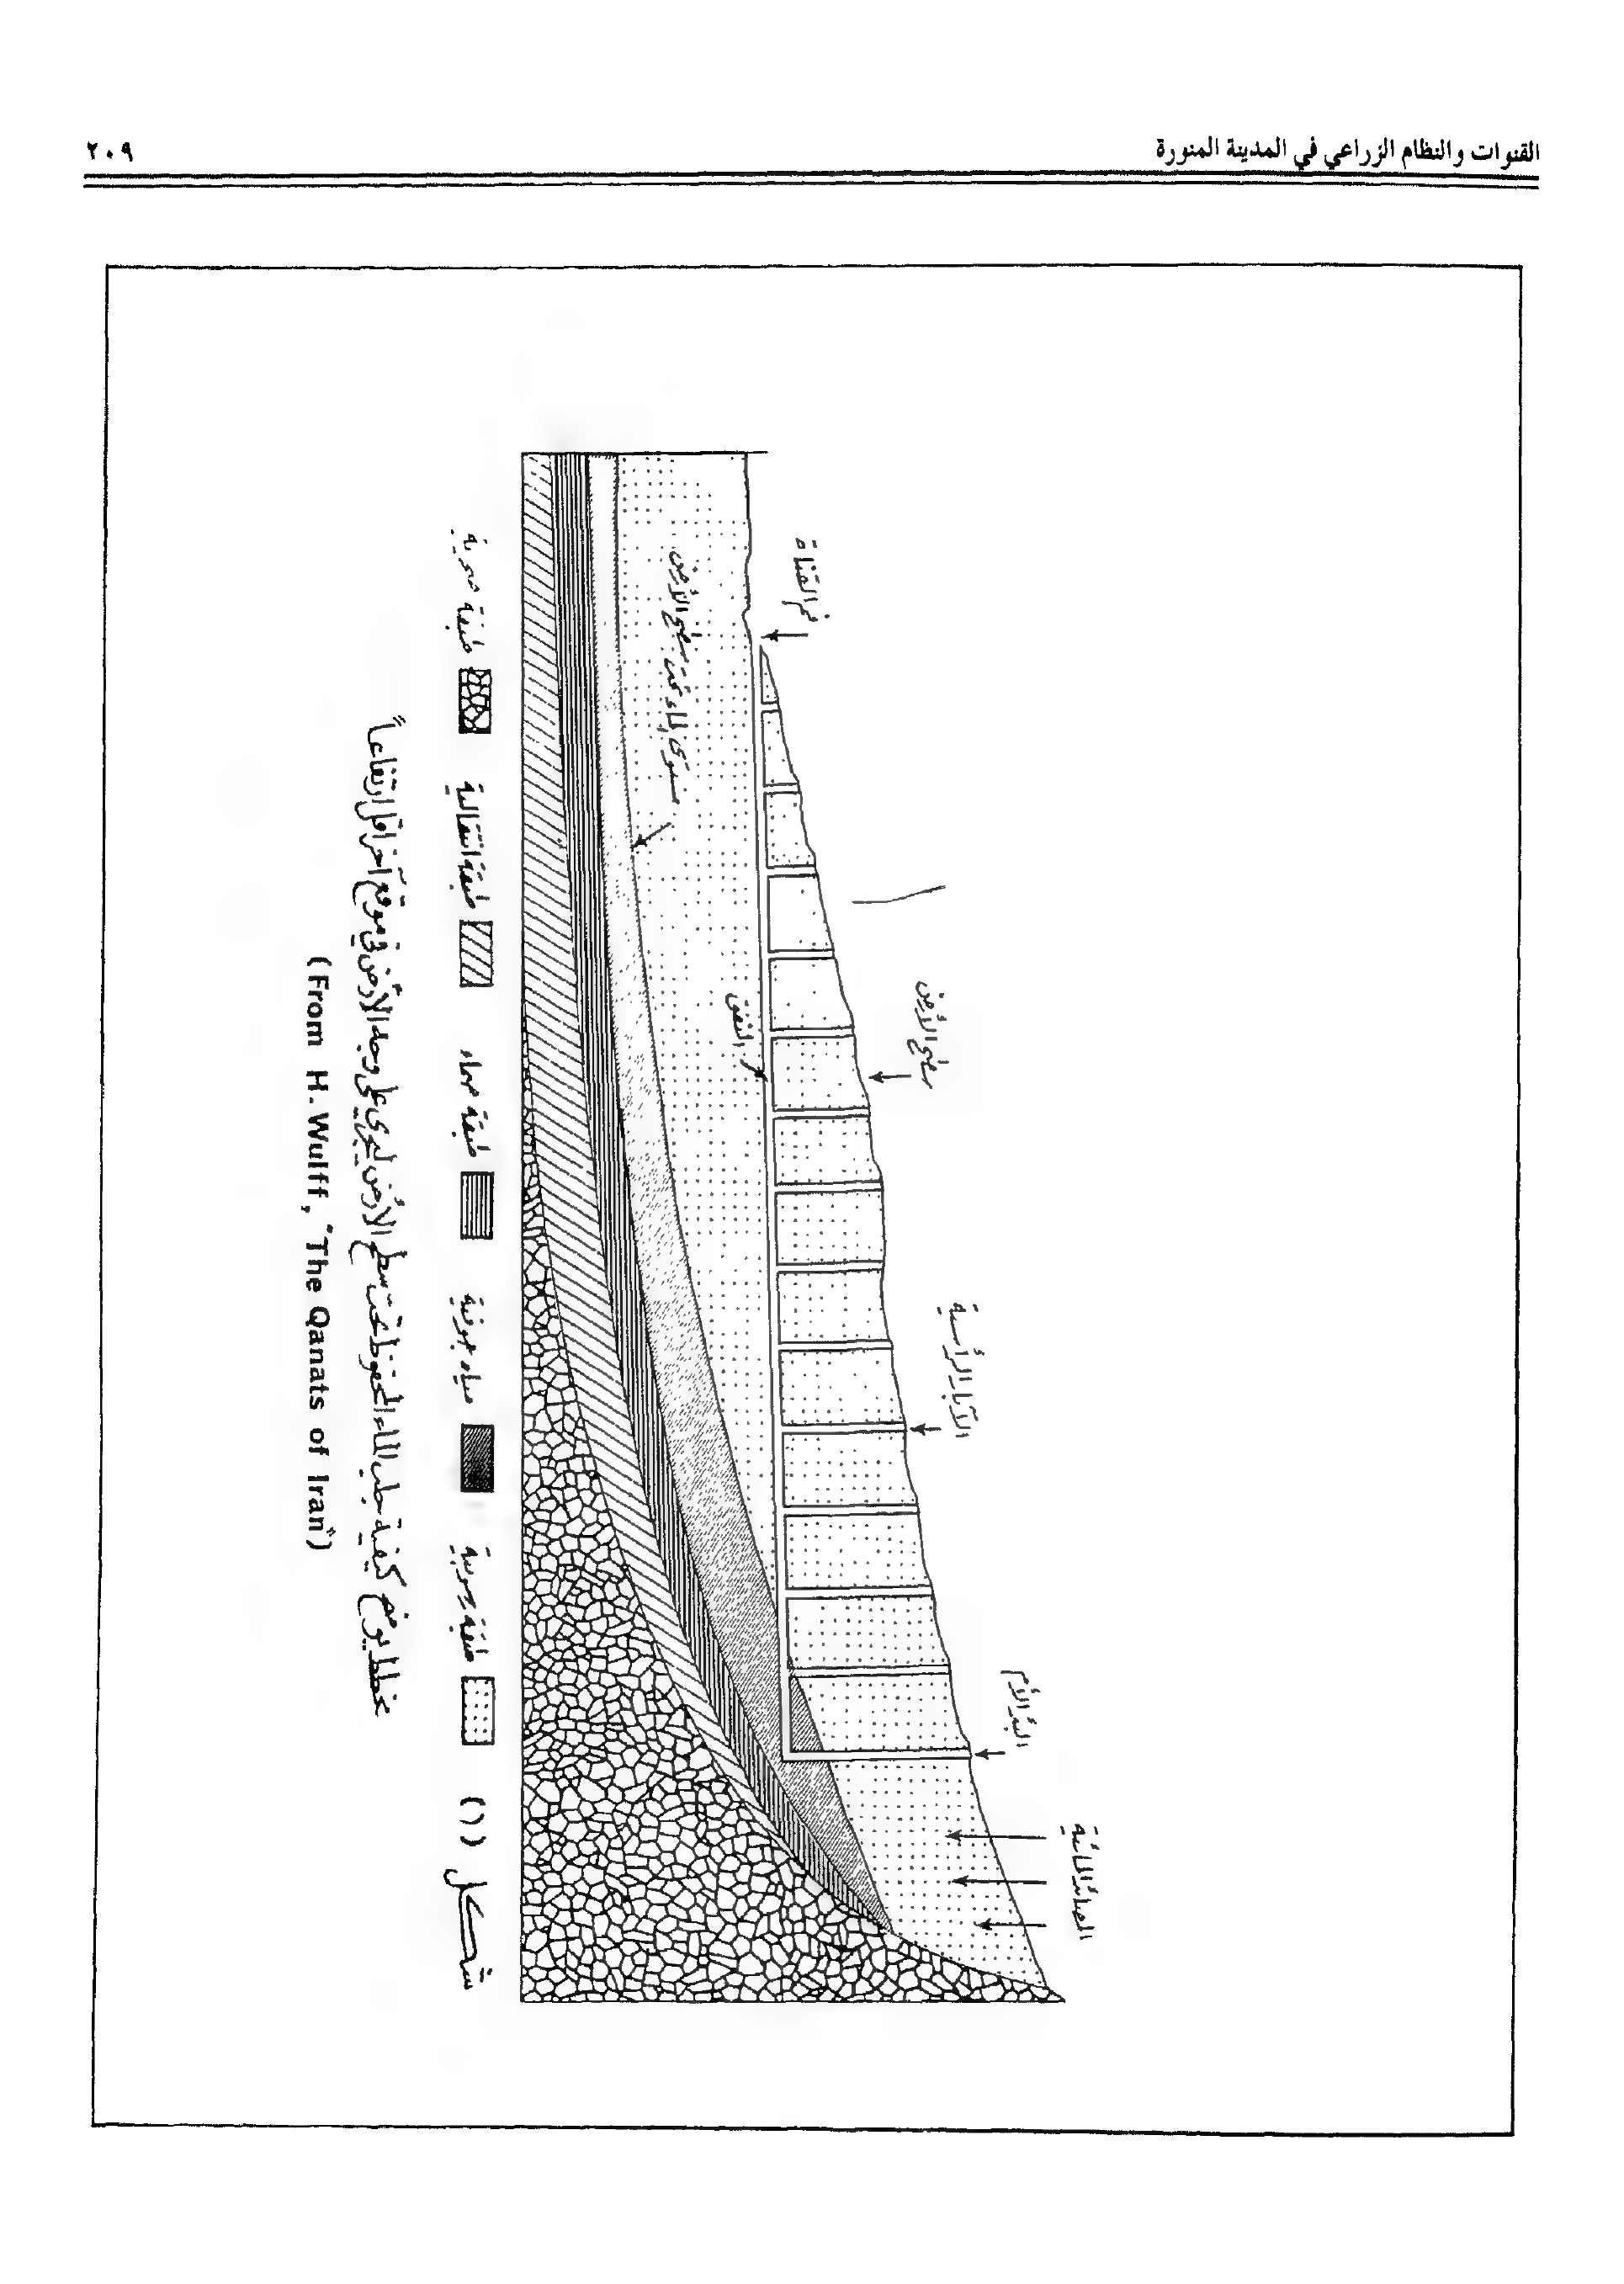 القنوات والنظام الزراعي في المدينة المنورة
٢٠٩
فم القناة
سطح الأرض
الآبار الرأسية
البئر الأم
المصائد المائية
مستوى الماء تحت سطح الأرض
النفق
شكل (١)
طبقة حصوية
مياه جوفية
طبقة صماء
طبقة انتقالية
طبقة صخرية
مخطط يوضح كيفية جلب الماء المحفوظ تحت سطح الأرض ليجري على وجه الأرض في موقع آخر أقل ارتفاعاً
(From H. Wulff, "The Qanats of Iran")